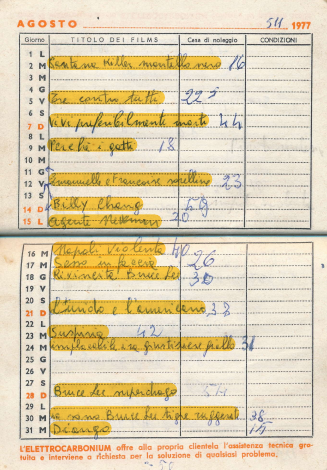 AGOSTO 511 1977
Giorno TITOLO DEI FILMS Casa di noleggio CONDIZIONI
1 L
2 M Santana Killer mantello nero 16
3 M
4 G Tre contro tutti 225
5 V
6 S
7 D Vivi preferibilmente morti 44
8 L
9 M Perché i gatti 18
10 M
11 G
12 V Emanuelle e Francoise sorelline 23
13 S
14 D Billy Chang 59
15 L Agente Newman 20
16 M Napoli violenta 40
17 M Sesso in faccia 26
18 G Rivincita Bruce Lee 30
19 V
20 S
21 D L'indio e l'americano 38
22 L
23 M Suspiria 42
24 M implacabili giustiziere giallo 31
25 G
26 V
27 S
28 D Bruce Lee superdrago 54
29 L
30 M io sono Bruce Lee tigre ruggenti 38
31 M Django 15
L'ELETTROCARBONIUM offre alla propria clientela l'assistenza tecnica gra-
tuita e interviene a richiesta per la soluzione di qualsiasi problema.